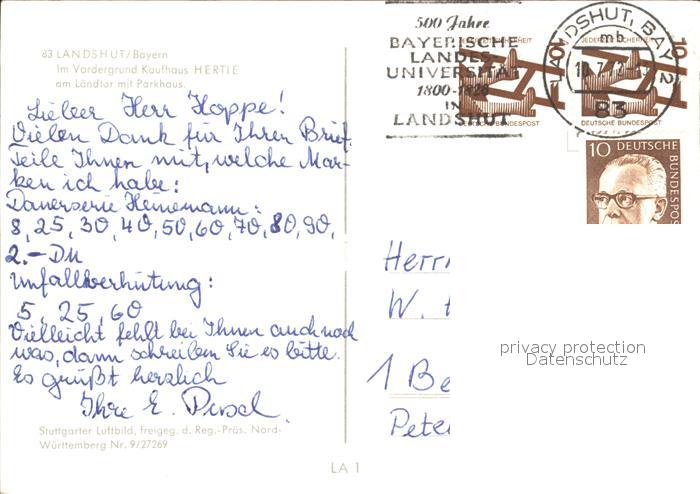 83 LANDSHUT/Bayern
Im Vordergrund Kaufhaus HERTIE
am Ländtor mit Parkhaus
Lieber Herr Hoppe!
Vielen Dank für Ihren Brief.
Teile Ihnen mit, welche Mar-
ken ich habe:
Dauerserie Heinemann:
8, 25, 30, 40, 50, 60, 70, 80, 90,
2.- DM
Unfallverhütung:
5, 25, 60
Vielleicht fehlt bei Ihnen auch noch
was, dann schreiben Sie es bitte.
Es grüßt herzlich
Ihre E.
Stuttgarter Luftbild, freigeg. d. Reg.-Präs. Nord-
Württemberg Nr. 9/27269
LA 1
500 Jahre
BAYERISCHE
LANDES
UNIVERSITÄT
1800-1826
IN
LANDSHUT
LANDSHUT, BAY 2
mb
83
JEDERZEIT SICHERHEIT
10
DEUTSCHE BUNDESPOST
JEDERZEIT SICHERHEIT
10
DEUTSCHE BUNDESPOST
10 DEUTSCHE
BUNDESPOS
Herrn
W.
1 Be
Pete
privacy protection
Datenschutz